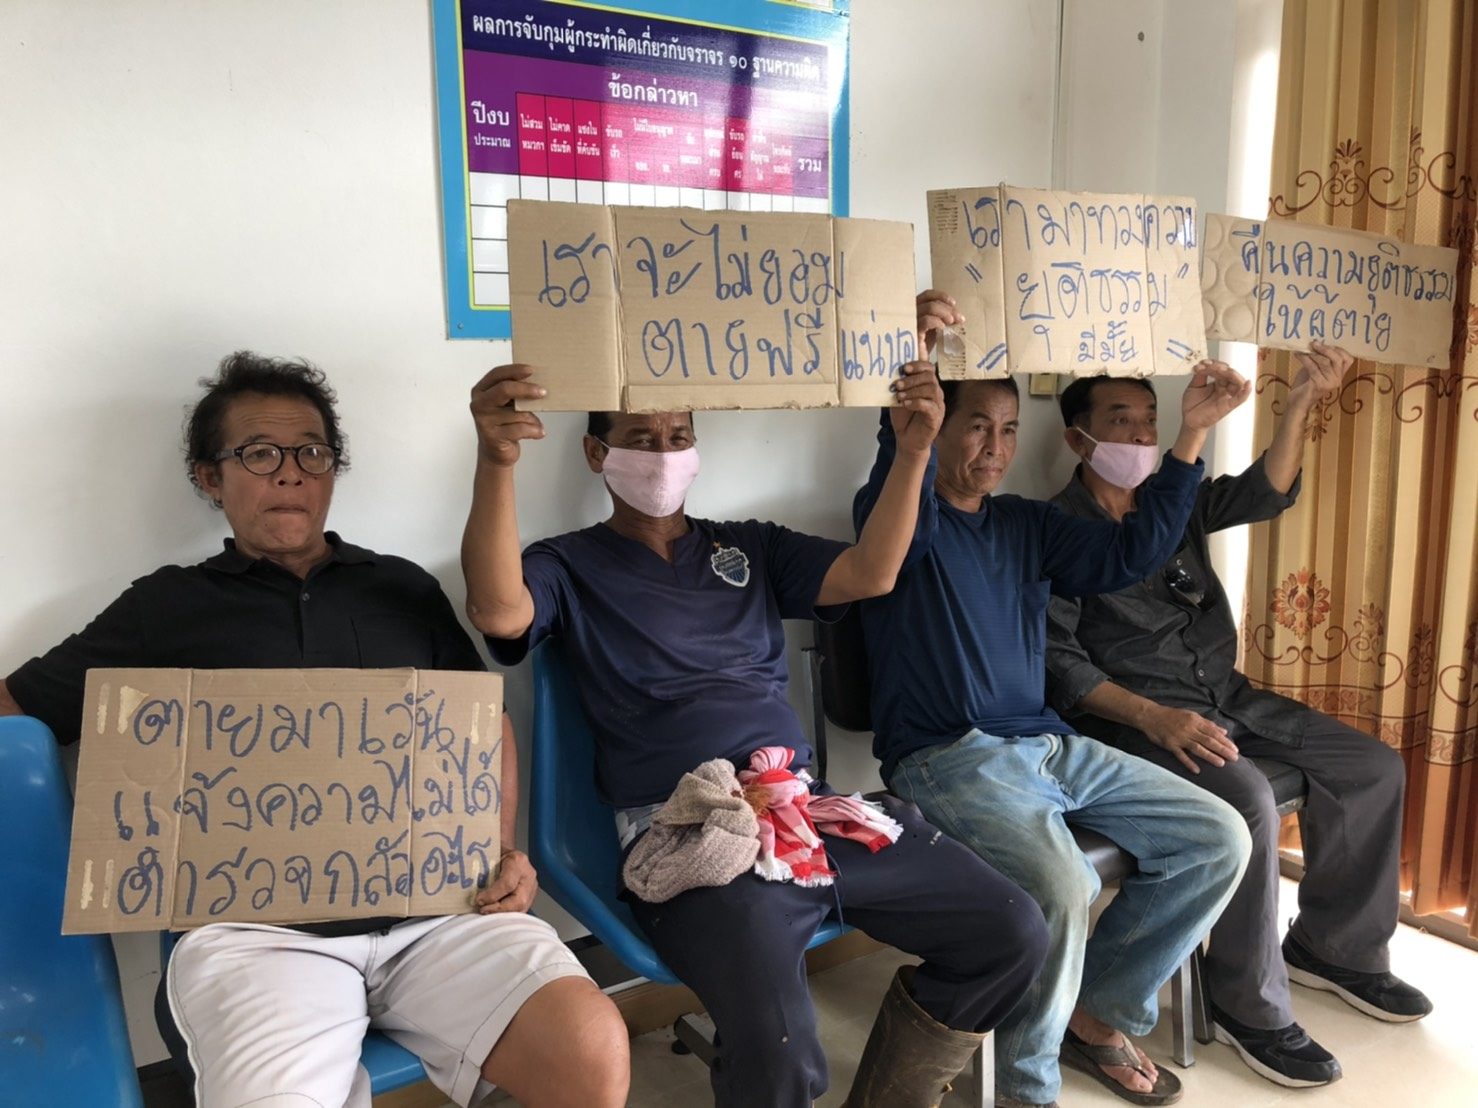 ผลการจับกุมผู้กระทำผิดเกี่ยวกับจราจร ๑๐ ฐานความผิด
ข้อกล่าวหา
ปีงบ
ประมาณ
ไม่สวม
หมวกฯ
ไม่คาด
เข็มขัด
แซงใน
ที่คับขัน
ขับรถ
เร็ว
ไม่มีใบอนุญาต
ขับรถ
ย้อน
ศร
รวม
เราจะไม่ยอม
ตายฟรีแน่นอ
เรามาทวงความ
"ยุติธรรม"
มีมั้ย
คืนความยุติธรรม
ให้ผู้ตาย
ตายมา เวัน
แจ้งความไม่ได้
ตำรวจกลัวอะไร